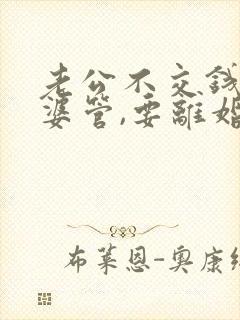 老公不交錢
婆管,要離婚
布萊恩-奧康納